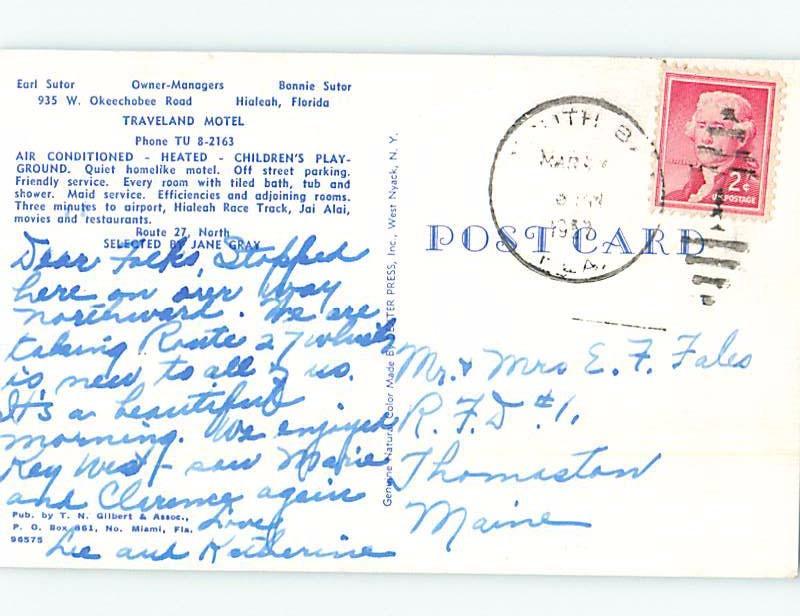 Earl Sutor Owner-Managers Bonnie Sutor
935 W. Okeechobee Road Hialeah, Florida
TRAVELAND MOTEL
Phone TU 8-2163
AIR CONDITIONED - HEATED - CHILDREN'S PLAY-
GROUND. Quiet homelike motel. Off street parking.
Friendly service. Every room with tiled bath, tub and
shower. Maid service. Efficiencies and adjoining rooms.
Three minutes to airport, Hialeah Race Track, Jai Alai,
movies and restaurants.
Route 27, North
SELECTED BY JANE GRAY
Dear Folks, Stopped
here on our way
northward. We are
taking Route 27 which
is new to all of us.
It's a beautiful
morning. We enjoyed
Key West - saw Marie
and Clarence again
Love,
Lee and Katherine
Pub. by T. N. Gilbert & Assoc.,
P. O. Box 861, No. Miami, Fla.
96575
Genuine Natural Color Made By DEXTER PRESS, Inc., West Nyack, N. Y.
POST CARD
SOUTH BAY
MAR
FLA.
2¢
U.S. POSTAGE
Mr. & Mrs E. F. Fales
R. F. D #1,
Thomaston
Maine